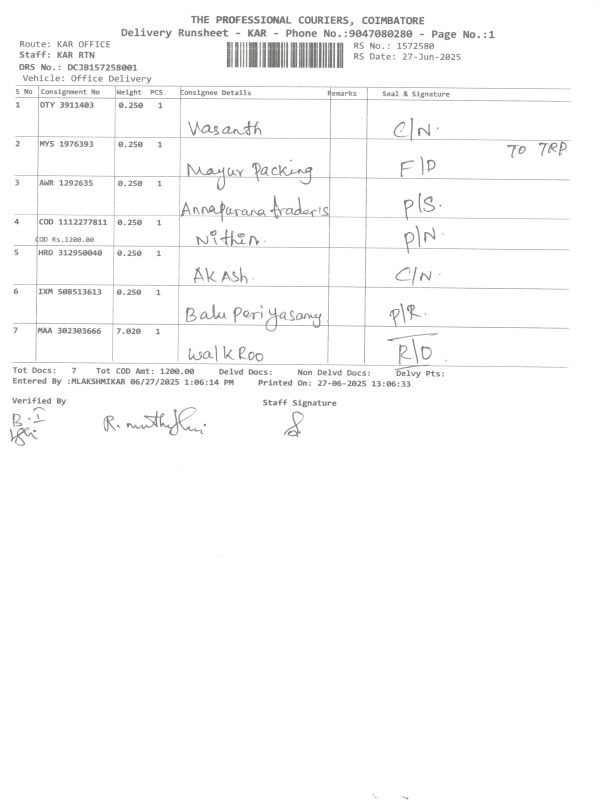 THE PROFESSIONAL COURIERS, COIMBATORE
Delivery Runsheet - KAR - Phone No.:9047080280 - Page No.:1
Route: KAR OFFICE RS No.: 1572580
Staff: KAR RTN RS Date: 27-Jun-2025
DRS No.: DCJB157258001
Vehicle: Office Delivery
S No Consignment No Weight PCS Consignee Details Remarks Seal & Signature
1 OTY 3911403 0.250 1
Vasanth C/N.
2 MYS 1976393 0.250 1 TO TRP
Mayur Packing F/D
3 AWR 1292635 0.250 1
Annapurana traders P/S.
4 COD 1112277811 0.250 1
COD Rs.1200.00 Nithin. P/N.
5 HRD 312950040 0.250 1
AKASh. C/N.
6 IXM 508513613 0.250 1
Balu Periyasamy P/R.
7 MAA 302303666 7.020 1
Walk Roo R/O
Tot Docs: 7 Tot COD Amt: 1200.00 Delvd Docs: Non Delvd Docs: Delvy Pts:
Entered By :MLAKSHMIKAR 06/27/2025 1:06:14 PM Printed On: 27-06-2025 13:06:33
Verified By Staff Signature